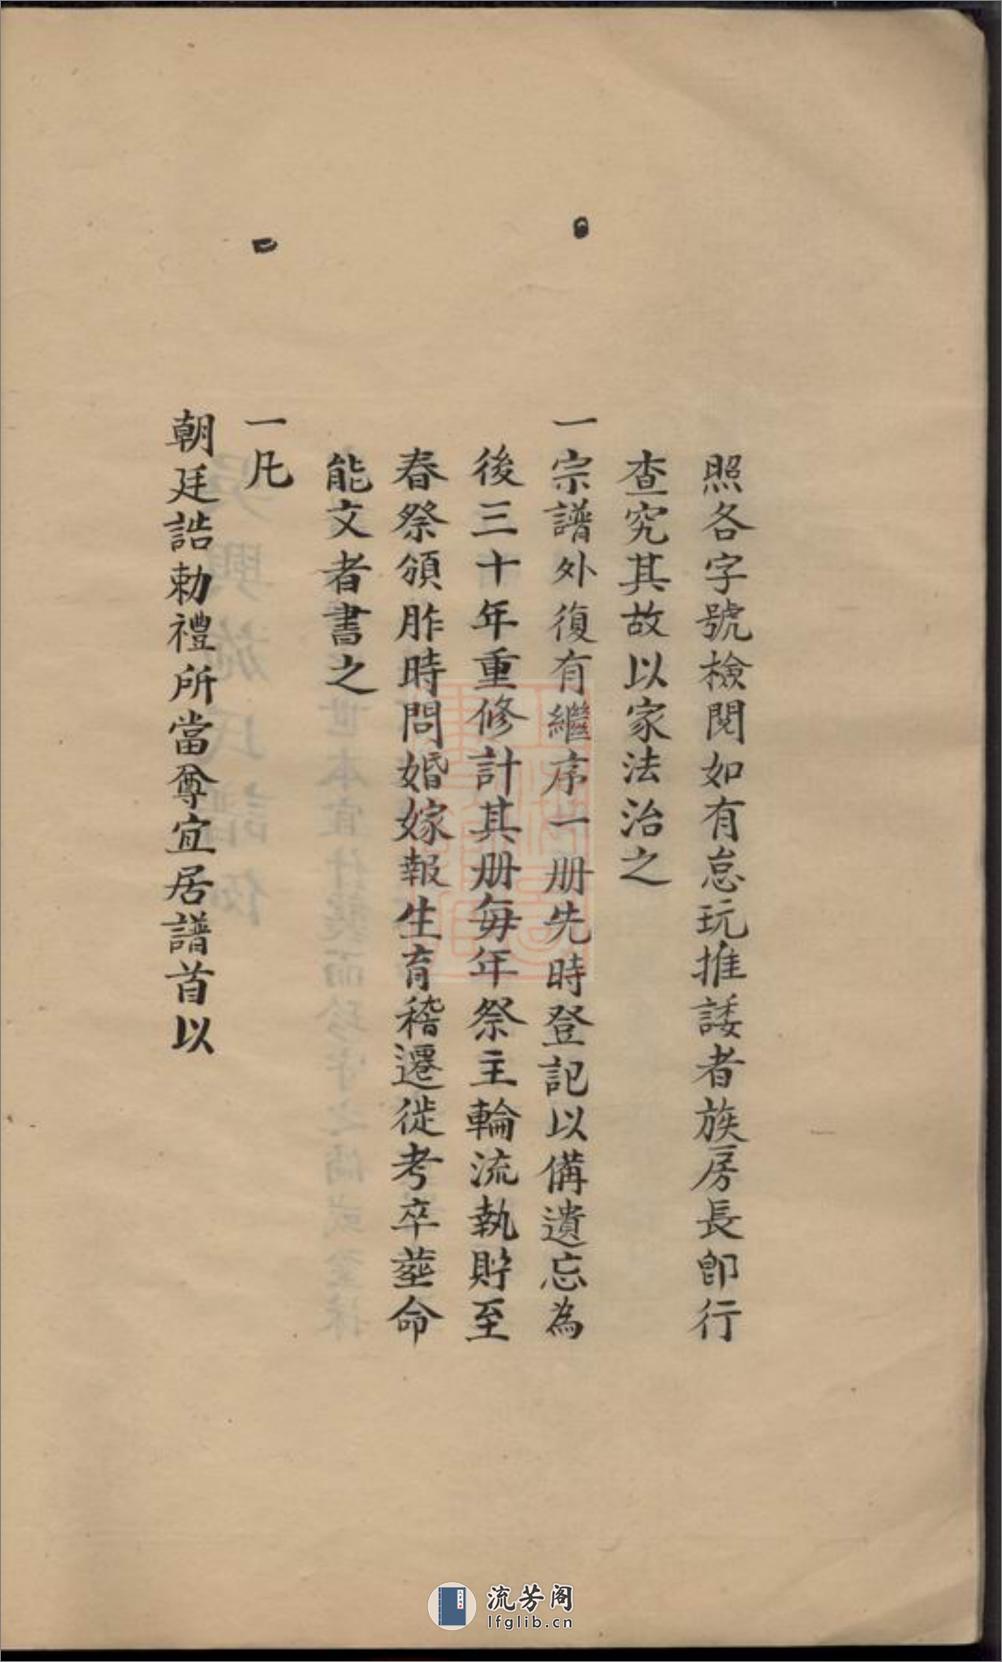 照各字號檢閱如有怠玩推諉者族房長即行
查究其故以家法治之
一宗譜外復有繼序一册先時登記以備遺忘為
後三十年重修計其册每年祭主輪流執貯至
春祭頒胙時問婚嫁報生育稽遷徙考卒塟命
能文者書之
一凡
朝廷誥勅禮所當尊宜居譜首以
流芳阁
lfglib.cn